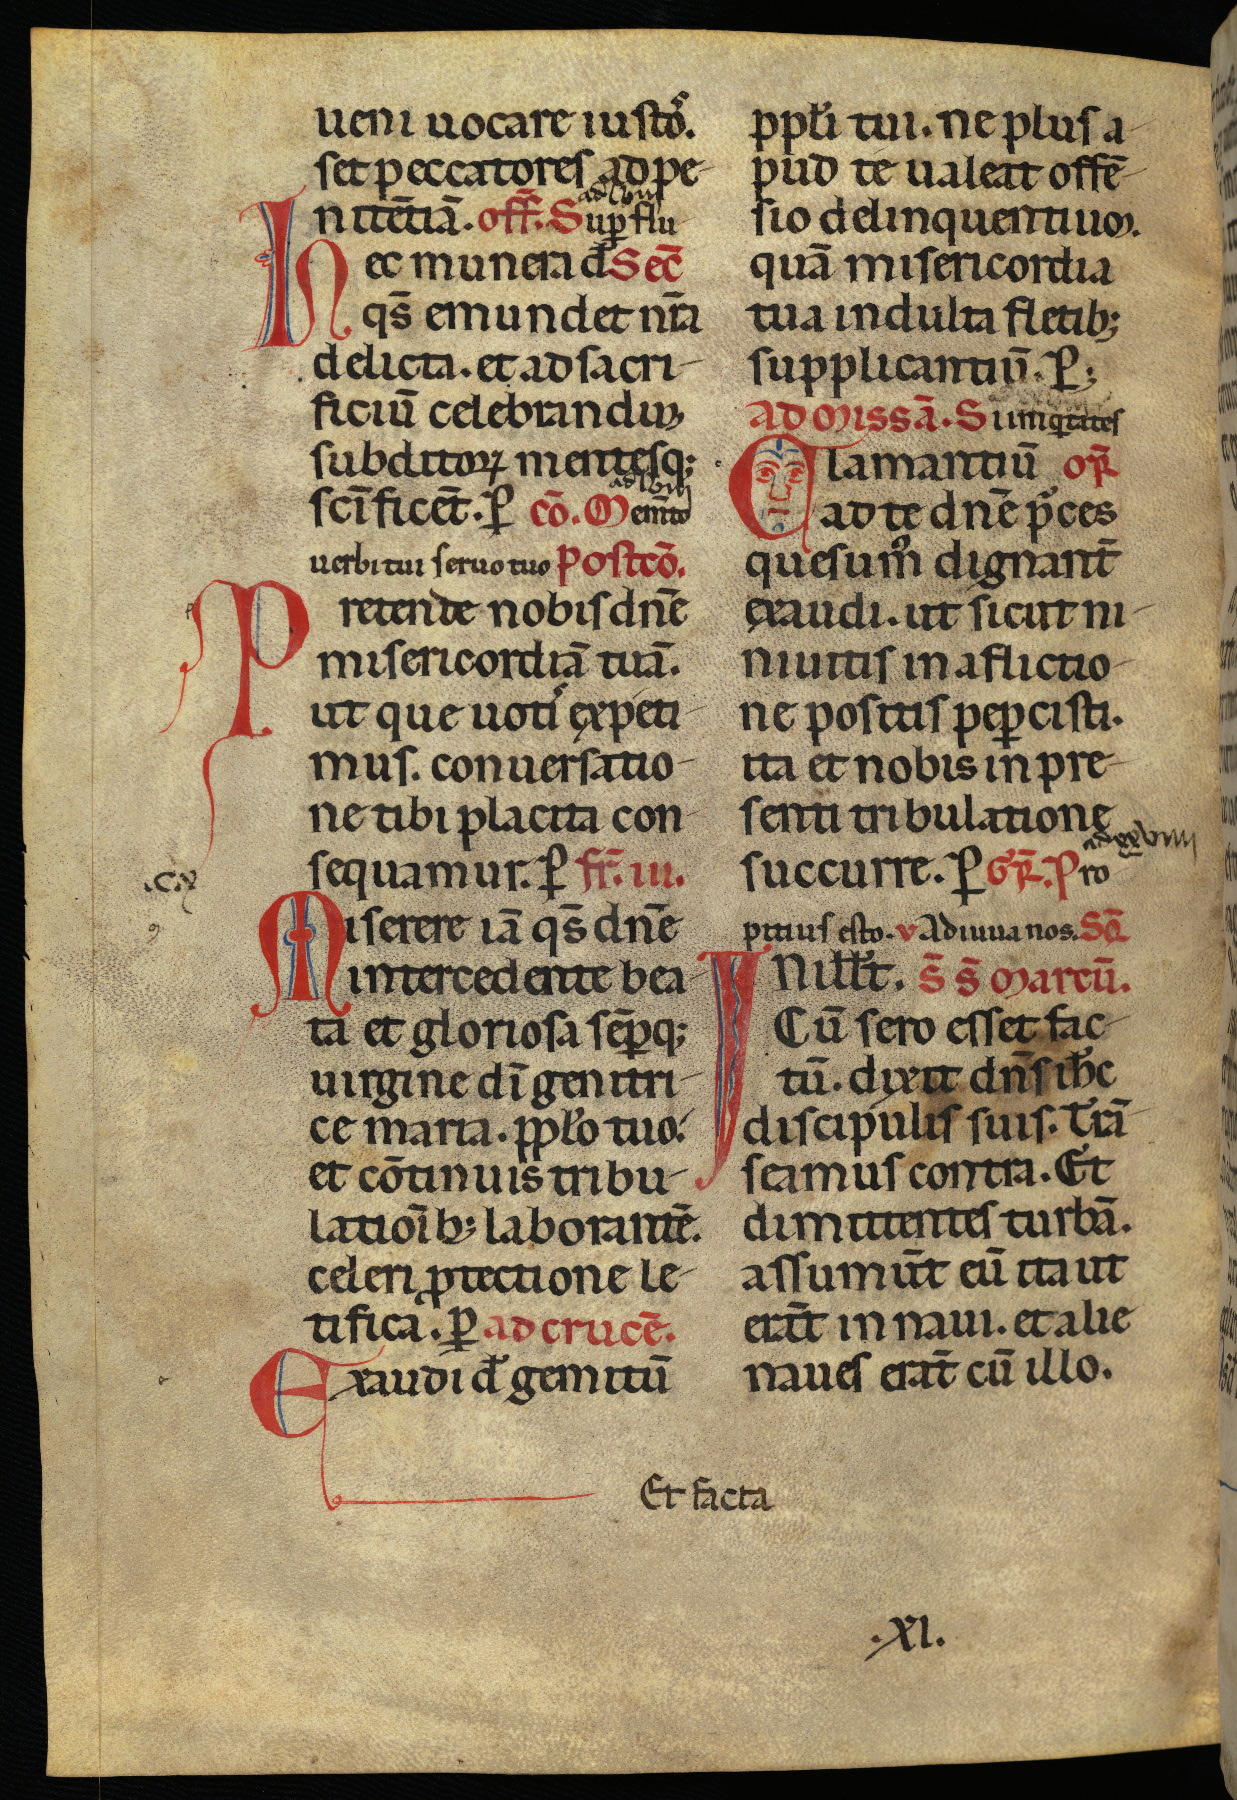 ueni uocare iustoꝰ.
set peccatores ad pe-
nitētiā. off̄. Sup̱ flu
ad lviii
Hec munera d̄ Sec̄
qs̄ emundet nr̄a
delicta. et ad sacri-
ficiū celebrandū
subditoꝝ mentesq;
sc̄ificet̄. ꝑ cō. Mem̄to
ad lviii
uerbi tui seruo tuo Postcō.
Pretende nobis dn̄e
misericordiā tuā.
ut que uotiˢ expeti-
mus. conuersatio-
ne tibi placita con-
sequamur. ꝑ fr̄. iii.
.cx.
Miserere iā qs̄ dn̄e
intercedente bea-
ta et gloriosa sēꝑq;
uirgine dī genitri-
ce maria. ppl̄o tuo.
et cōtinuis tribu-
latioīb; laborantē.
celeri ꝓtectione le-
tifica. ꝑ ad crucē.
Exaudi d̄ gemitū
ppl̄i tui. ne plus a-
pud te ualeat offē-
sio delinquentiuꝫ.
quā misericordia
tua indulta fletib;
supplicantiū. ꝑ;
ad missā. S iniq̄tates
Clamantiū or̄
ad te dn̄e p̄ces
quesumꝰ dignant̄
exaudi. ut sicut ni-
niuitis in aflictio-
ne positis peꝑcisti.
ita et nobis in pre-
senti tribulatione
succurre. ꝑ Gr̄. Pro
ad xxviiii
pitius esto. v Adiuua nos. Sq̄
In ill̄t. s̄ s̄ marcū.
Cū sero esset fac-
tū. dixit dn̄s ih̄c
discipulis suis. Trā-
seamus contra. Et
dimittentes turbā.
assumūt eū ita ut
erāt in naui. et alie
naues erāt cū illo.
Et facta
.XI.